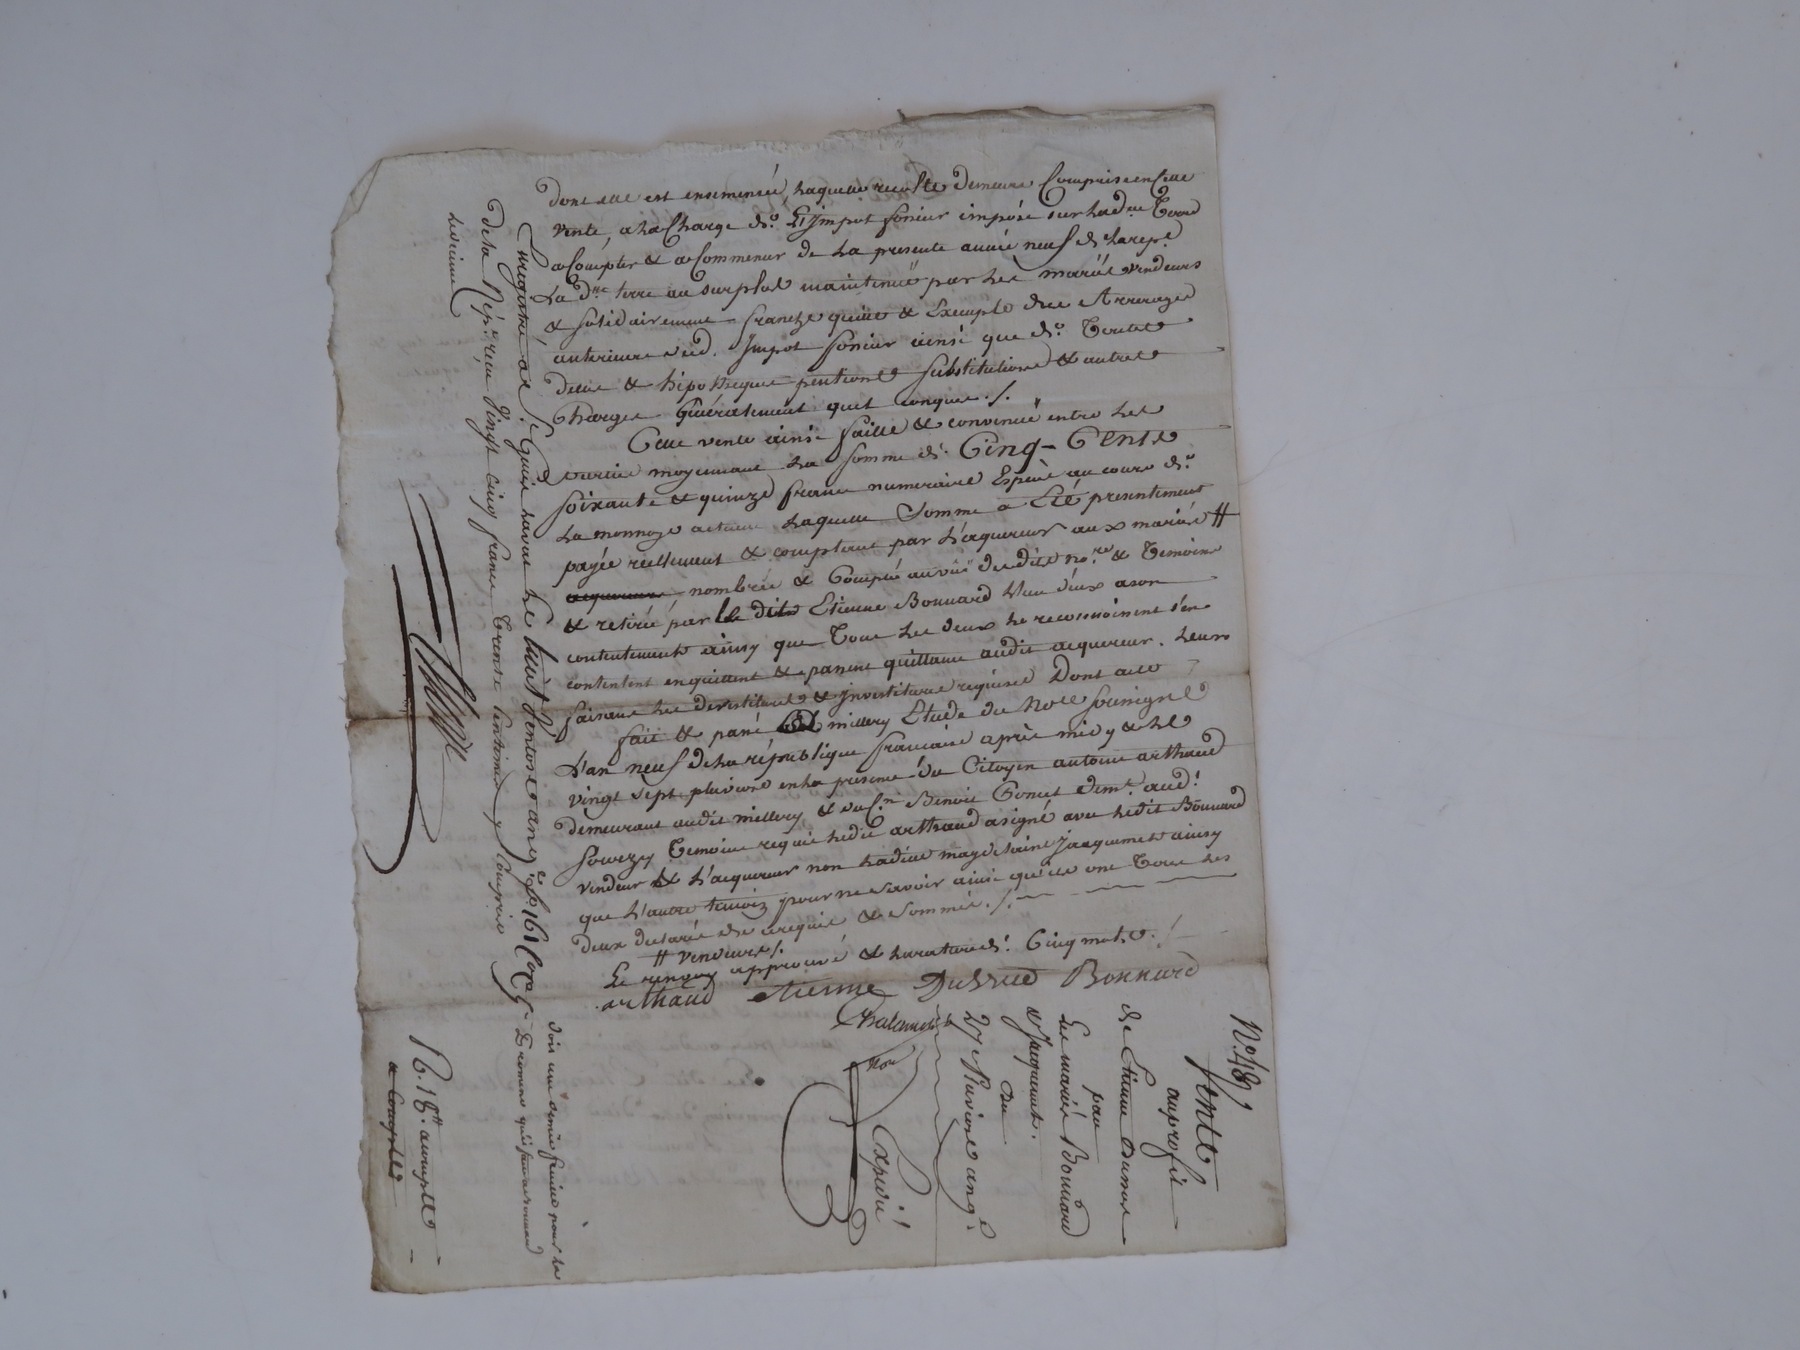 dont elle est ensemencée, laquelle recolte demeure Comprise en Cette
vente, a la Charge de Limpot foncier imposé sur lad.te Terre
a Compter & a Commencer de La presente année neuf de la rep.e
La d.te terre au surplus maintenue par les mariés vendeurs
& solidairement franche quitte & Exempte des Arrerages
anterieurs dud. Impot foncier ainsi que de Toutes
dettes & hipotheques pentions substitutions & autres
Charges Généralement quel conques ./.
Cette vente ainsi faitte & convenue entre les
parties moyennant La somme de Cinq-Cents
soixante & quinze francs numeraire Espèce au cours de
La monnoye actuelle Laquelle Somme a Eté presentement
payée reellement & comptant par L'aquereur aux mariés #
nombrée & Comptée au vu desdits no.re & Temoins
& retirée par le dit Etienne Bonnard L'un d'eux a son
contentement ainsy que Tous les deux le reconnoissent s'en
contentent en quittent & passent quittance audit acquereur. Leurs
faisant les devestitures & Investitures requises Dont acte
fait & passé a millery Etude du No.re soussigné
L'an neuf de la république francaise après midy & le
vingt sept pluviose en la presence du Citoyen antoine arthaud
demeurant audit millery & du C.en Benoit Goncet dem.t aud.t
Sourzy Temoins requis ledit arthaud a signé avec ledit Bonnard
vendeur & L'acquereur non ladite magdelaine Jacquemet ainsy
que L'autre temoin pour ne savoir ainsi qu'ils ont Tous les
deux declaré de ce requis & sommés ./.
# vendeurs ./.
Le renvoy approuvé & la rature de Cinq mots ./.
arthaud Etienne Bonnard
No.re
Expedié
N.o 48,
Vente
au profit
de Etienne
par
Les mariés Bonnard
& Jacquemet.
Du
27 Pluviose an 9.e
Enregistré à S.t Genis Laval Le huit Ventose an 9 f.o 161
de la Rép.e reçu Vingt cinq francs trente Centimes y Compris
Le decime
doit une demie feuille pour la
R. 18.tt a compte
a Compte